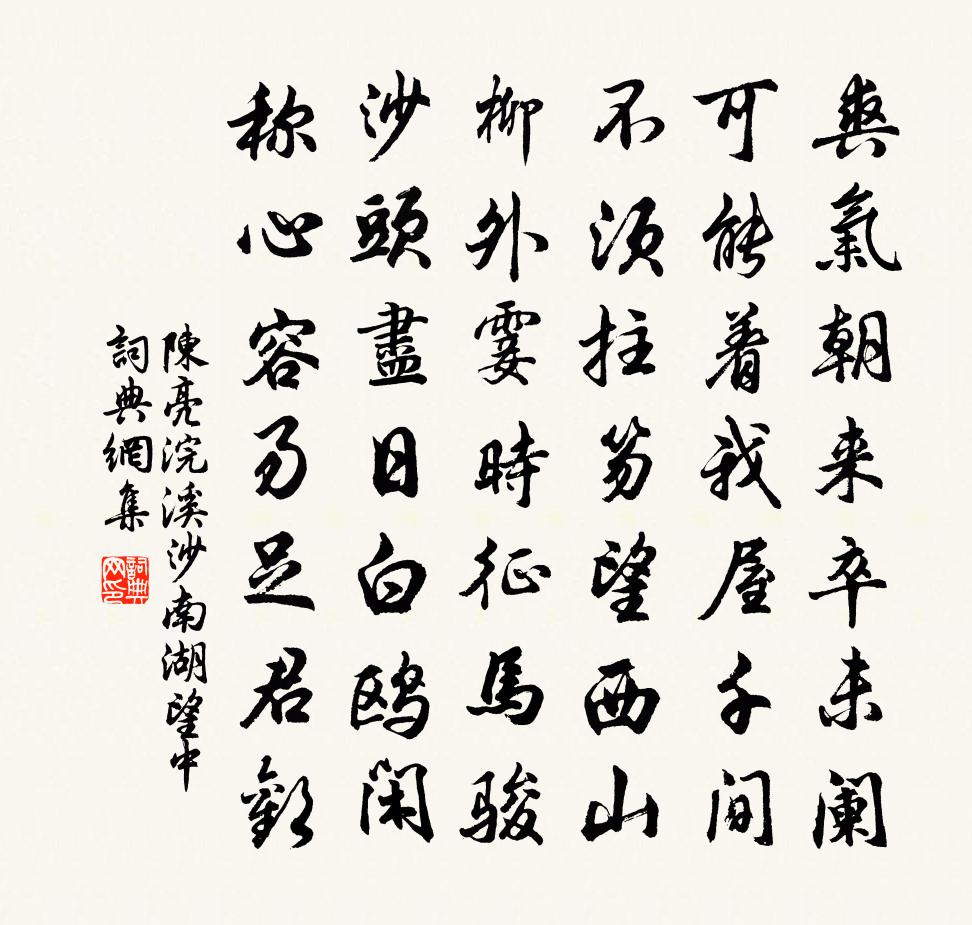 爽氣朝来卒未闌
可能着我屋千間
不須拄笏望西山
柳外霎時征馬駿
沙頭盡日白鷗閑
称心容易足君歡
陳亮浣溪沙南湖望中
詞典網集
詞典网印